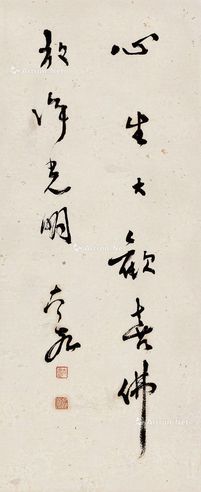 心生大歡喜佛
放淨光明